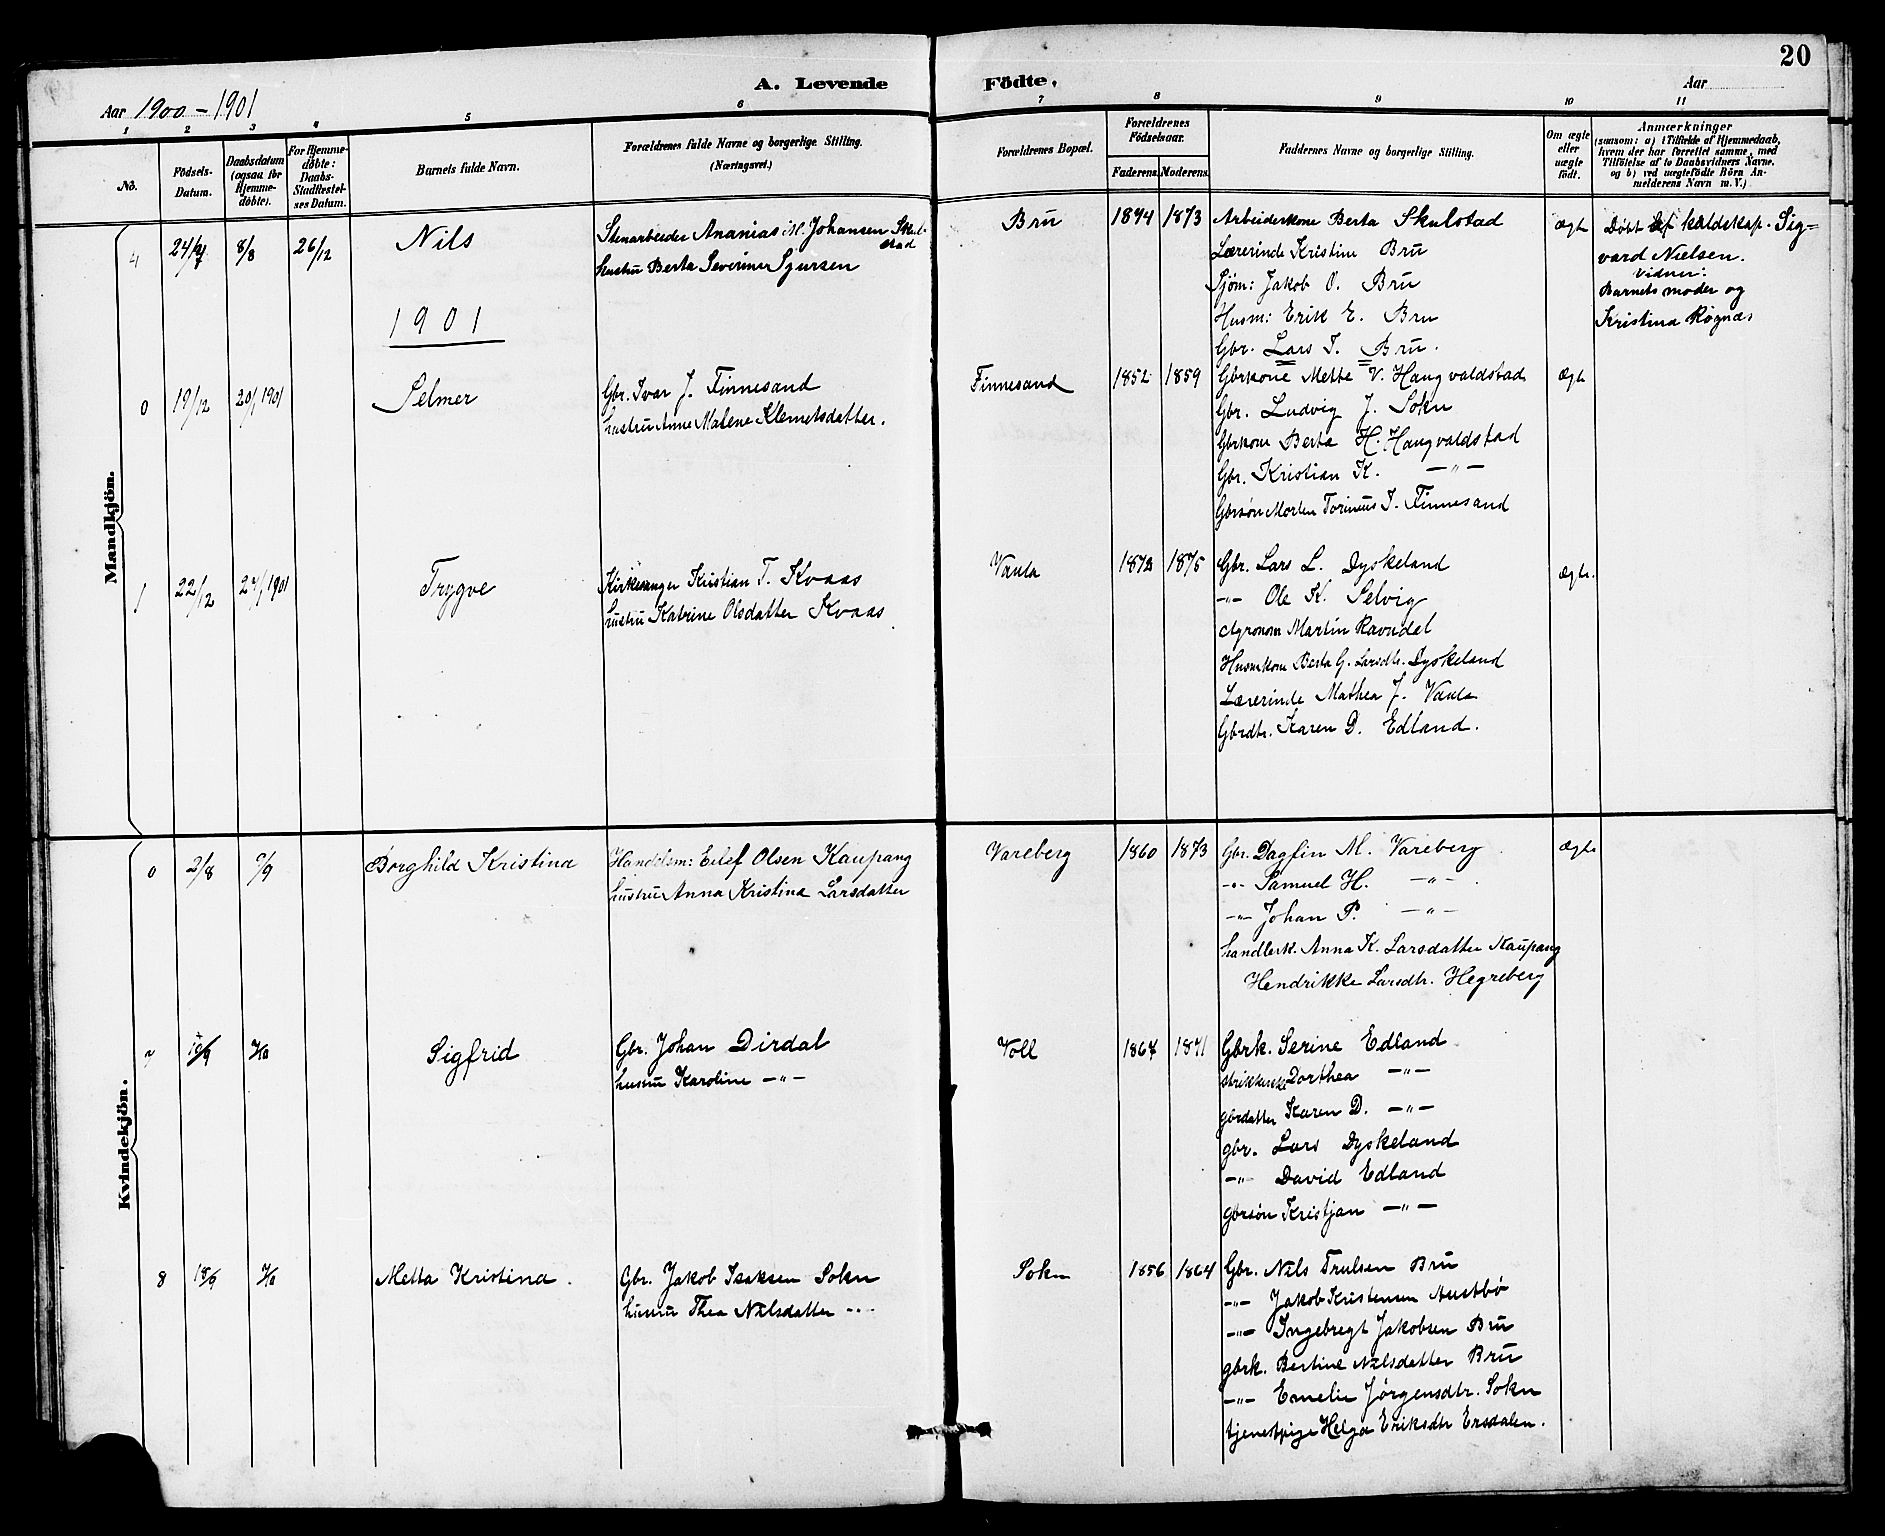 20
A. Levende Födte.
Aar 1900 - 1901
Aar
1 2 3 4 5 6 7 8 9 10 11
No.
Födsels-
Datum.
Daabsdatum
(ogsaa for
Hjemme-
döbte).
For Hjemme-
döbte:
Daabs-
Stadfestel-
ses Datum.
Barnets fulde Navn.
Forældrenes fulde Navne og borgerlige Stilling.
(Næringsvei.)
Forældrenes Bopæl.
Forældrenes
Födselsaar.
Faderens. Moderens.
Faddernes Navne og borgerlige Stilling.
Om ægte
eller
uægte
födt.
Anmærkninger
(saasom: a) i Tilfælde af Hjemmedaab,
hvem der har forrettet samme, med
Tilföielse af to Daabsvidners Navne,
og b) ved uægtefödte Börn An-
melderens Navn m. V.)
Mandkjön.
4 8/8 26/12 Nils
Stenarbeider Ananias M. Johansen Skul-
stad
hustru Berta Severine Sjursen
Bru 1874 1873
Arbeiderkone Berta Skulstad
Lærerinde Kristine Bru
Sjøm: Jakob O. Bru
Husm: Erik E. Bru
Gbr. Lars T. Bru.
ægte
Døbt af kaldskap. Sig=
vard Nielsen.
Vidner:
Barnets moder og
Kristina Rognæs
1901
0 19/12 20/1 1901 Selmer
Gbr. Ivar J. Finnesand
hustru Anne Malene Klemetsdatter.
Finnesand 1852 1859
Gbrkone Mette V. Haugvaldstad
Gbr. Ludvig J. Sokn
Gbrkone Berta H. Haugvaldstad
Gbr. Kristian K. -"-
Gbrsøn Morten Torinius I. Finnesand
ægte
1 22/12 27/1 1901 Trygve
Kirkesanger Kristian T. Kvaas
hustru Katrine Olsdatter Kvaas
Vaula 1872 1875
Gbr. Lars L. Dyskeland
-"- Ole K. Selvig
Agronom Martin Ravndal
Husmkone Berta G. Larsdtr. Dyskeland
Lærerinde Mathea J. Vaula
Gbrdtr. Karen D. Edland.
ægte.
Kvindekjön.
0 2/8 /9 Borghild Kristina
Handelsm: Eilef Olsen Kaupang
hustru Anna Kristina Larsdatter
Vareberg 1860 1873
Gbr. Dagfin M. Vareberg
-"- Samuel H. -"-
-"- Johan P. -"-
handlerk. Anna K. Larsdatter Kaupang
Hendrikke Larsdtr. Hegreberg
ægte
7 Sigfrid
Gbr. Johan Dirdal
hustru Karoline -"-
Voll 1867 1871
Gbrk. Serine Edland
Dorthea -"-
gbrdatter Karen D. -"-
gbr. Lars Dyskeland
-"- David Edland
gbrsøn Kristjan -"-
8 18/9 Metta Kristina.
Gbr. Jakob Isaksen Sokn
hustru Thea Nilsdatter -"-
Sokn 1856 1864
Gbr. Nils Trulsen Bru
-"- Jakob Kristensen Austbø
-"- Ingebregt Jakobsen Bru
gbrk. Bertine Nilsdatter Bru
-"- Emelie Jørgensdtr. Sokn
tjenestpige Helga Eriksdtr Ersdalen.